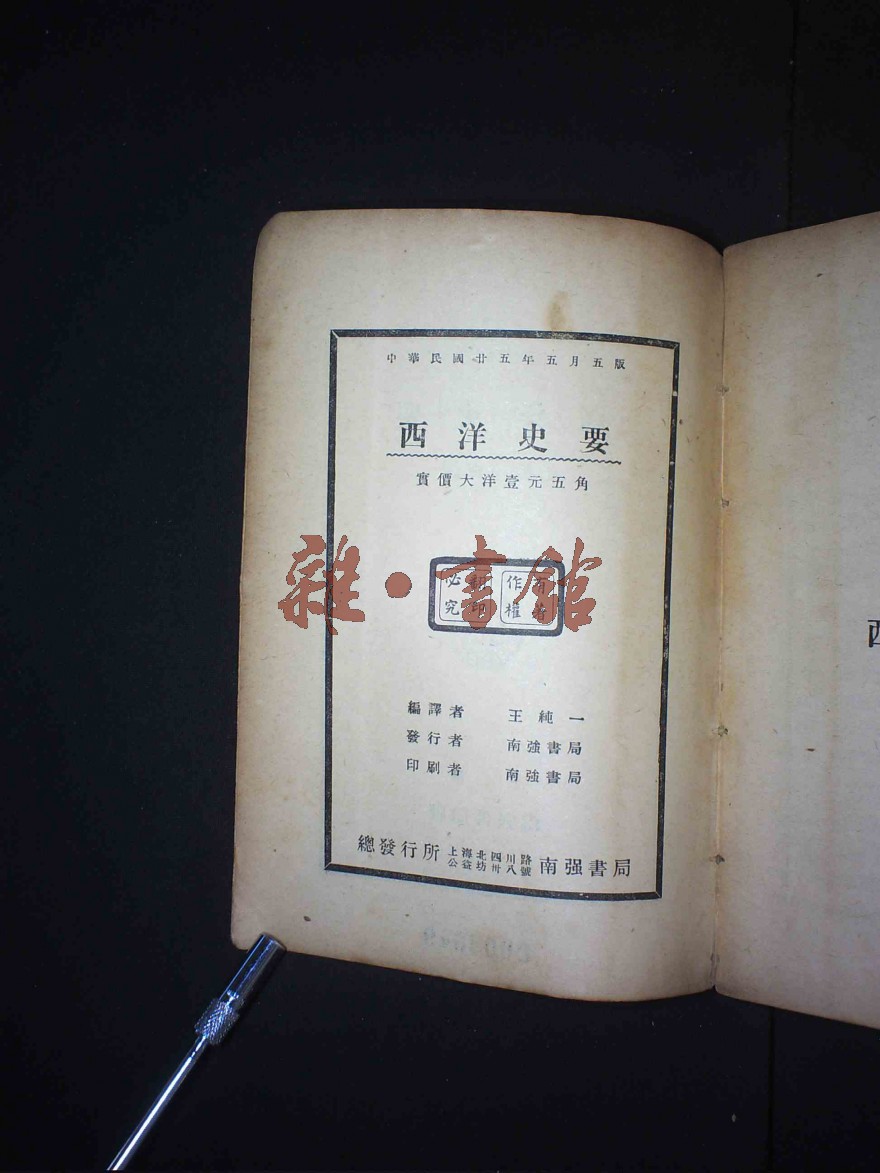 中華民國廿五年五月五版
西洋史要
實價大洋壹元五角
有著作權
翻印必究
雜·書館
編譯者 王純一
發行者 南強書局
印刷者 南強書局
總發行所 上海北四川路公益坊卅八號 南强書局
西